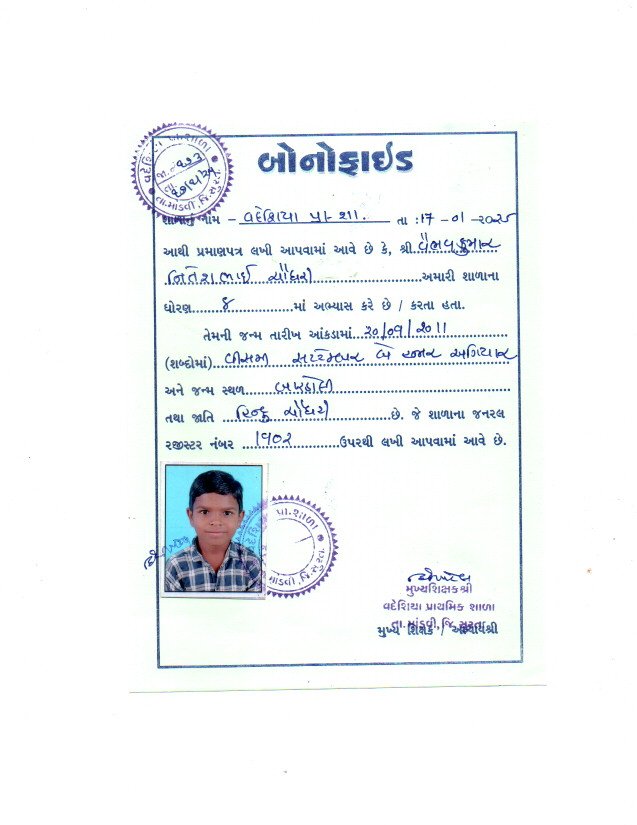 બોનોફાઇડ
વદેશિયા પ્રા.શાળા
તા.માંડવી,જિ.સુરત.
શાળાનું નામ - વદેશિયા પ્રા. શા. તા :17-01-2025
આથી પ્રમાણપત્ર લખી આપવામાં આવે છે કે, શ્રી વૈભવકુમાર
નિતેશભાઈ ચૌધરી અમારી શાળાના
ધોરણ માં અભ્યાસ કરે છે / કરતા હતા.
તેમની જન્મ તારીખ આંકડામાં 20/09/2011
(શબ્દોમાં) વીસમી સપ્ટેમ્બર બે હજાર અગિયાર
અને જન્મ સ્થળ
તથા જાતિ હિન્દુ ચૌધરી છે. જે શાળાના જનરલ
રજીસ્ટર નંબર ૧૭૦૨ ઉપરથી લખી આપવામાં આવે છે.
પ્રા.શાળા
માંડવી,જિ.સુરત.
મુખ્યશિક્ષકશ્રી
વદેશિયા પ્રાથમિક શાળા
તા.માંડવી,જિ.સુરત
મુખ્ય શિક્ષક / આચાર્યશ્રી